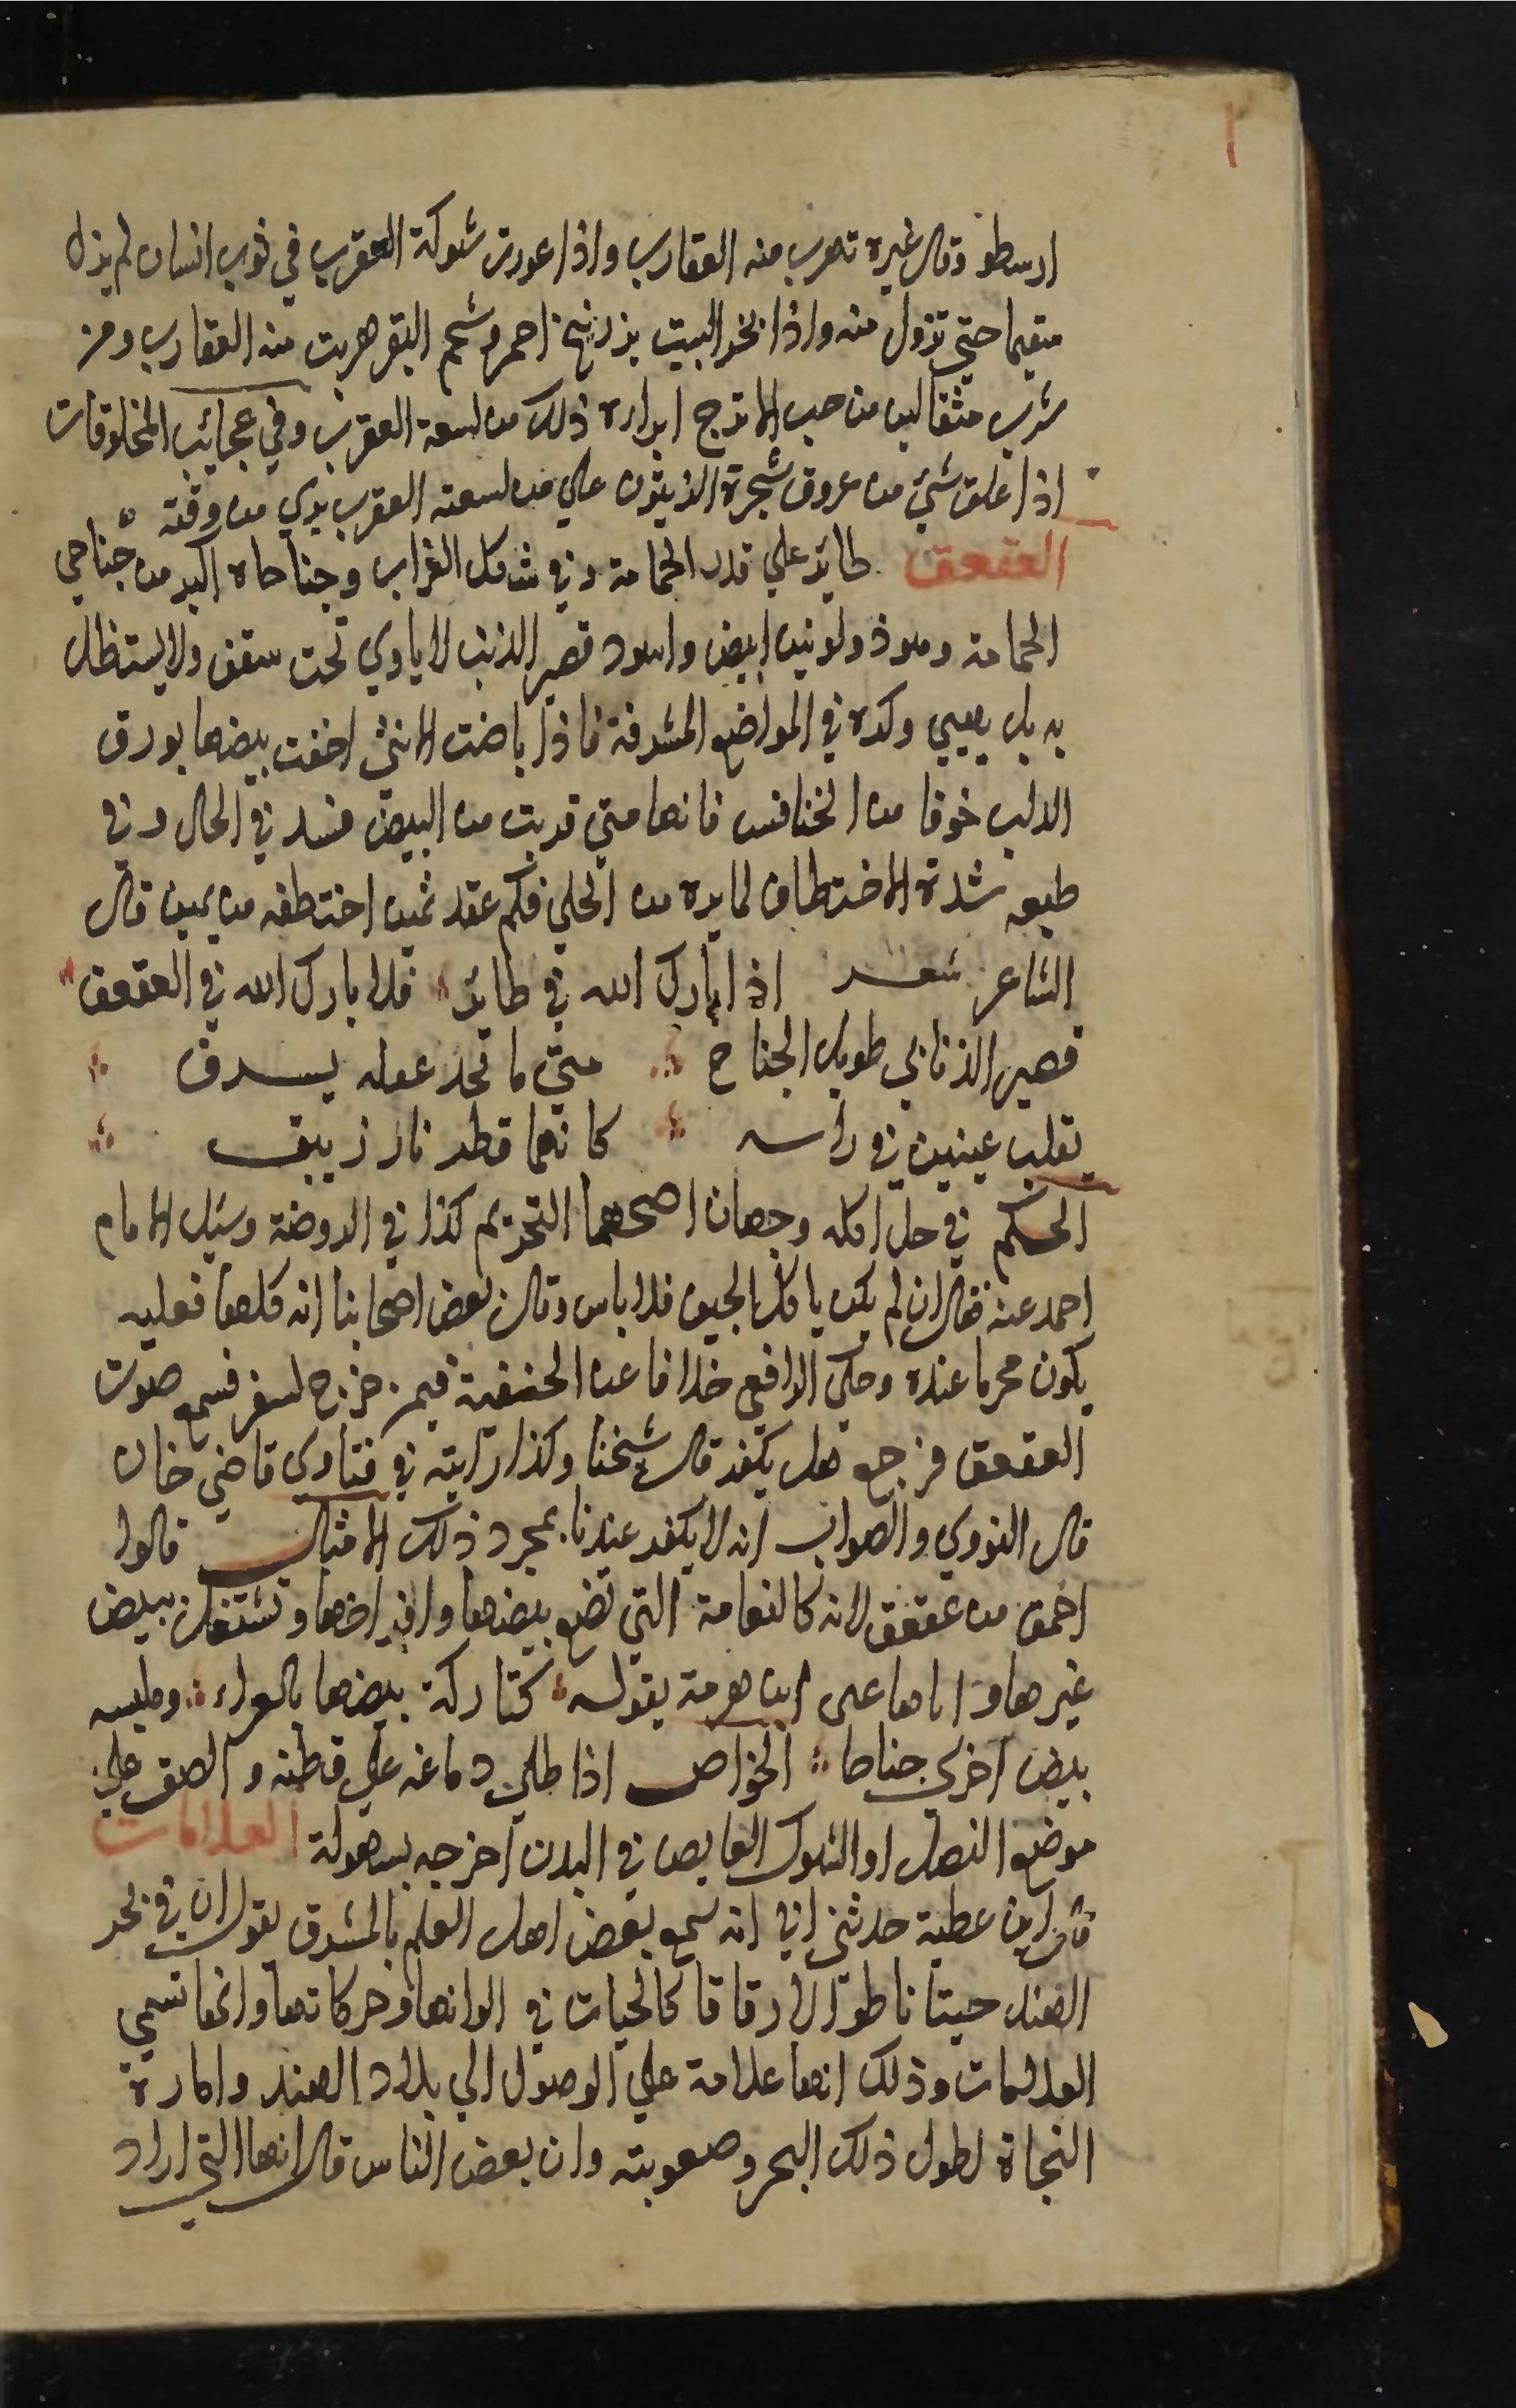 ارسطو وقال غيره تهرب منه العقارب واذا غورت شوكة العقرب في ثوب انسان لم يزل
مقيما حتي تزول منه واذا بخر البيت بزرنيخ احمر وشحم البقر هربت منه العقارب ومن
شرب مثقالين من حب الاترج ابراه ذلك من لسعة العقرب وفي عجائب المخلوقات
اذا علق شيئ من عروق شجرة الزيتون علي من لسعته العقرب بري من وقته
العقعق طاير علي قدر الحمامة وفي شكل الغراب وجناحاه اكبر من جناحي
الحمامة وهو ذو لونين ابيض واسود قصير الذنب لا ياوي تحت سقف ولا يستظل
به بل يهيي وكره في المواضع المشرفة فاذا باضت الانثي اخفت بيضها بورق
الدلب خوفا من الخنافس فانها متي قربت من البيض فسد في الحال وفي
طبعه شدة الاختطاف لما يره من الحلي فكم عقد ثمين اختطفه من يمين قال
الشاعر شعر اذا بارك الله في طائر فلا بارك الله في العقعق
قصير الذنابي طويل الجناح متي ما تجد غفله يسرق
تقلب عينين في راسه كانهما قطر نار زيبق
الحكم في حل اكله وجهان اصحهما التحريم كذا في الروضة وسئل الامام
احمد عنه فقال ان لم يكن ياكل الجيف فلا باس وقال بعض اصحابنا انه كلها فعليه
يكون محرما عنده وحكي الرافعي خلافا عن الحنفية فيمن خرج لسفر فسمع صوت
العقعق فرجع هل يكفر قال شيخنا وكذا رايته في فتاوي قاضي خان
قال النووي والصواب انه لا يكفر عندنا بمجرد ذلك الامثال قالوا
احمق من عقعق لانه كالنعامة التي تضع بيضها وافراخها وتشتغل ببيض
غيرها واياها عني ابن هرمة بقوله كتاركة بيضها بالعراء وملبسه
بيض اخري جناحا الخواص اذا طلي دماغه علي قطنه والصق علي
موضع النصل او الشوك الغايص في البدن اخرجه بسهولة العلامات
قال ابن عطية حدثني ابي انه سمع بعض اهل العلم بالمشرق يقول ان في بحر
الهند حيتانا طوالا رقاقا كالحيات في الوانها وحركاتها وانها تسمي
العلامات وذلك انها علامة علي الوصول الي بلاد الهند وامارة
النجاة لطول ذلك البحر وصعوبته وان بعض الناس قال انها التي اراد